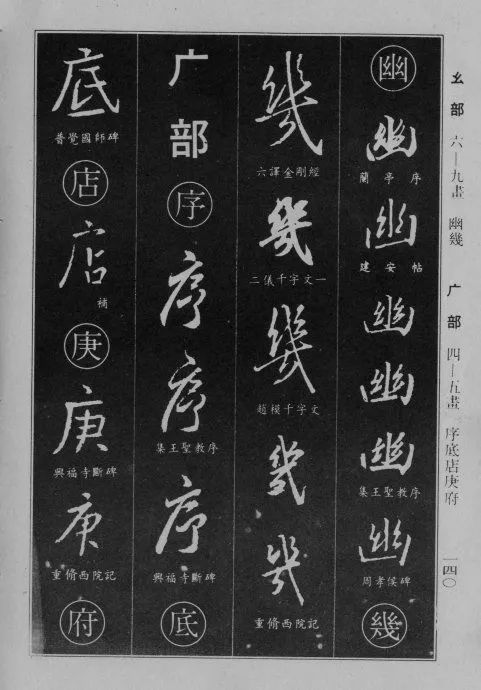 幺部 六—九畫 幽幾 广部 四—五畫 序底店庚府 一四〇
幽
幽
蘭亭序
幽
建安帖
幽
幽
幽
集王聖教序
幽
周孝侯碑
幾
幾
六譯金剛經
幾
二儀千字文一
幾
趙模千字文
幾
幾
重脩西院記
广部
序
序
序
集王聖教序
序
興福寺斷碑
底
底
普覺國師碑
店
店
補
庚
庚
興福寺斷碑
庚
重脩西院記
府